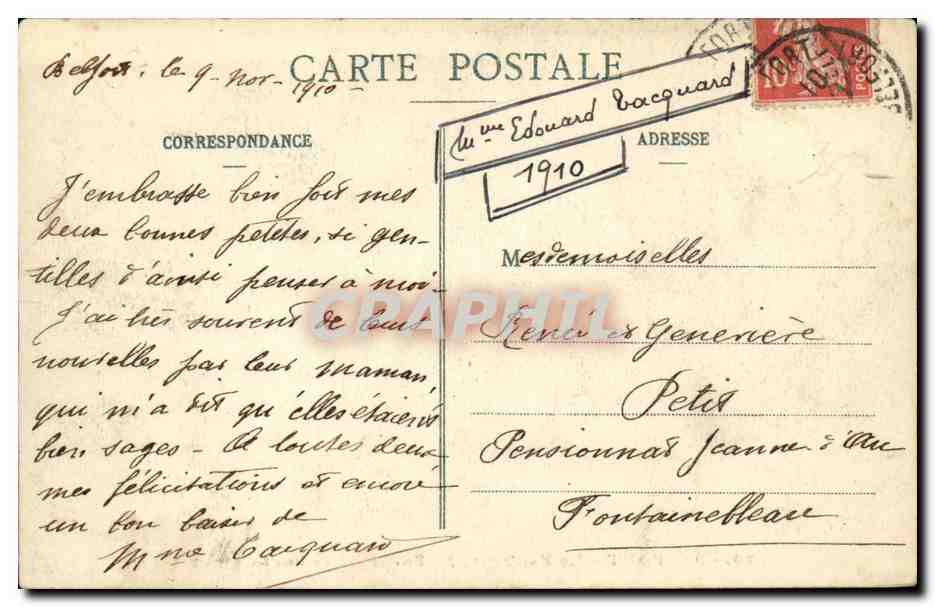 Belfort, le 9 nov- 1910-
CARTE POSTALE
CORRESPONDANCE
J'embrasse bien fort mes
deux bonnes petites, si gen-
tilles d'ainsi penser à moi-
J'ai très souvent de leurs
nouvelles par leur maman,
qui m'a dit qu'elles étaient
bien sages - A toutes deux
mes félicitations et encore
un bon baiser de
Mme Tacquard
Mme Edouard Tacquard
1910
ADRESSE
Mesdemoiselles
Renée et Geneviève
Petit
Pensionnat Jeanne d'Arc
Fontainebleau
10
POSTES
BELFORT
CPARPHIL